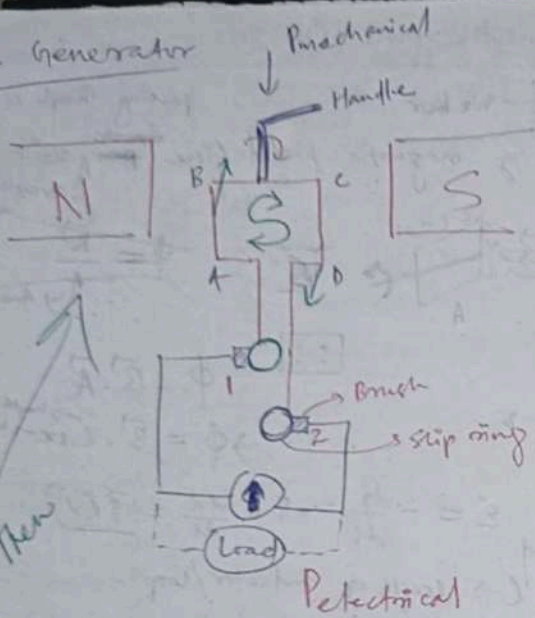 Generator
Pmechanical
Handle
B
C
N
S
A
D
A
1
Brush
2
slip ring
Load
Pelectrical